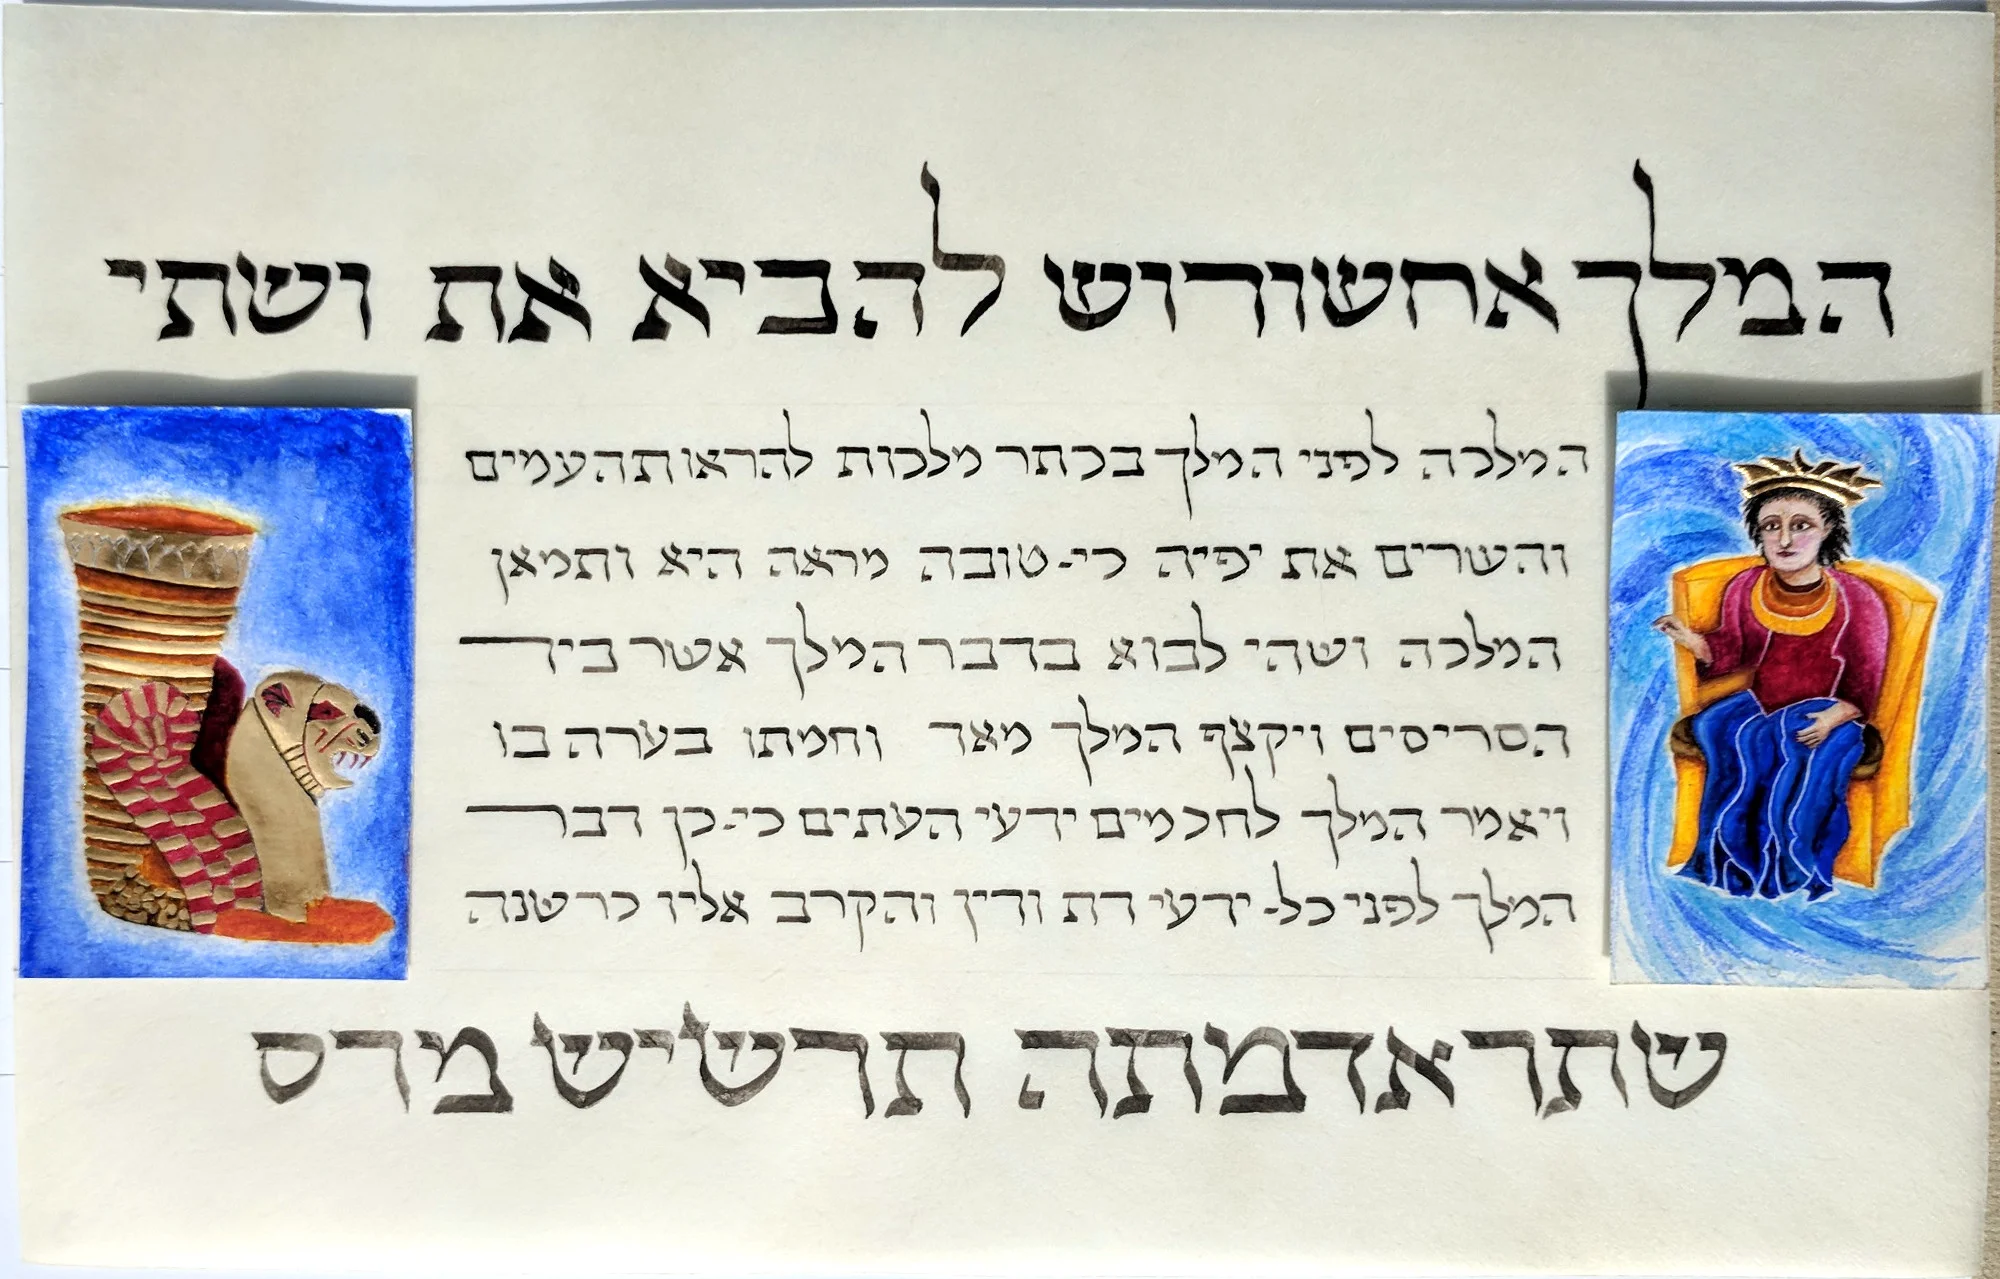 המלך אחשורוש להביא את ושתי
המלכה לפני המלך בכתר מלכות להראות העמים
והשרים את יפיה כי-טובה מראה היא ותמאן
המלכה ושתי לבוא בדבר המלך אשר ביד
הסריסים ויקצף המלך מאד וחמתו בערה בו
ויאמר המלך לחכמים ידעי העתים כי-כן דבר
המלך לפני כל-ידעי דת ודין והקרב אליו כרשנה
שתר אדמתה תרשיש מרס